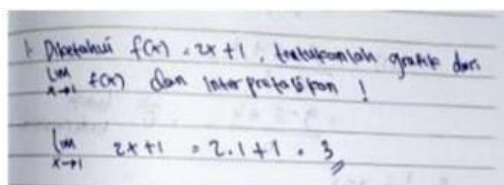 1. Diketahui f(x) = 2x + 1, tentukanlah grafik dari
lim x→1 f(x) dan Interpretasikan !
lim x→1 2x + 1 = 2.1 + 1 = 3